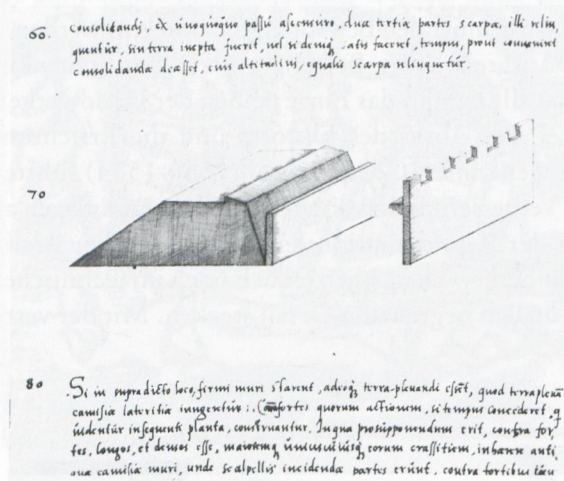 60. consolidandj, ex unoquoque passu ascensuro, duae tertia partes scarpae, illi relin,
quuntur, sin terra inepta fuerit, vel si satis faceret, tempus, prout conveniret
consolidanda deesset, cuius altitudini, equalis scarpa relinquetur.
70
80 Si in supradicto loco, firmi muri starent, adeoq; terra-plenandi essent, quod terraplenum
camisiae lateritiae iungentur: quorum actionem, si tempus concederet, q
uidentur insequenti planta, construantur. In qua prosupponendum erit, contra for,
tes, longos, et densos esse, maioremq; uniuscuiusq; eorum crassitiem, inhaerere anti,
quae camisiae muri, unde scalpellis incidendae partes erunt, contra fortibus